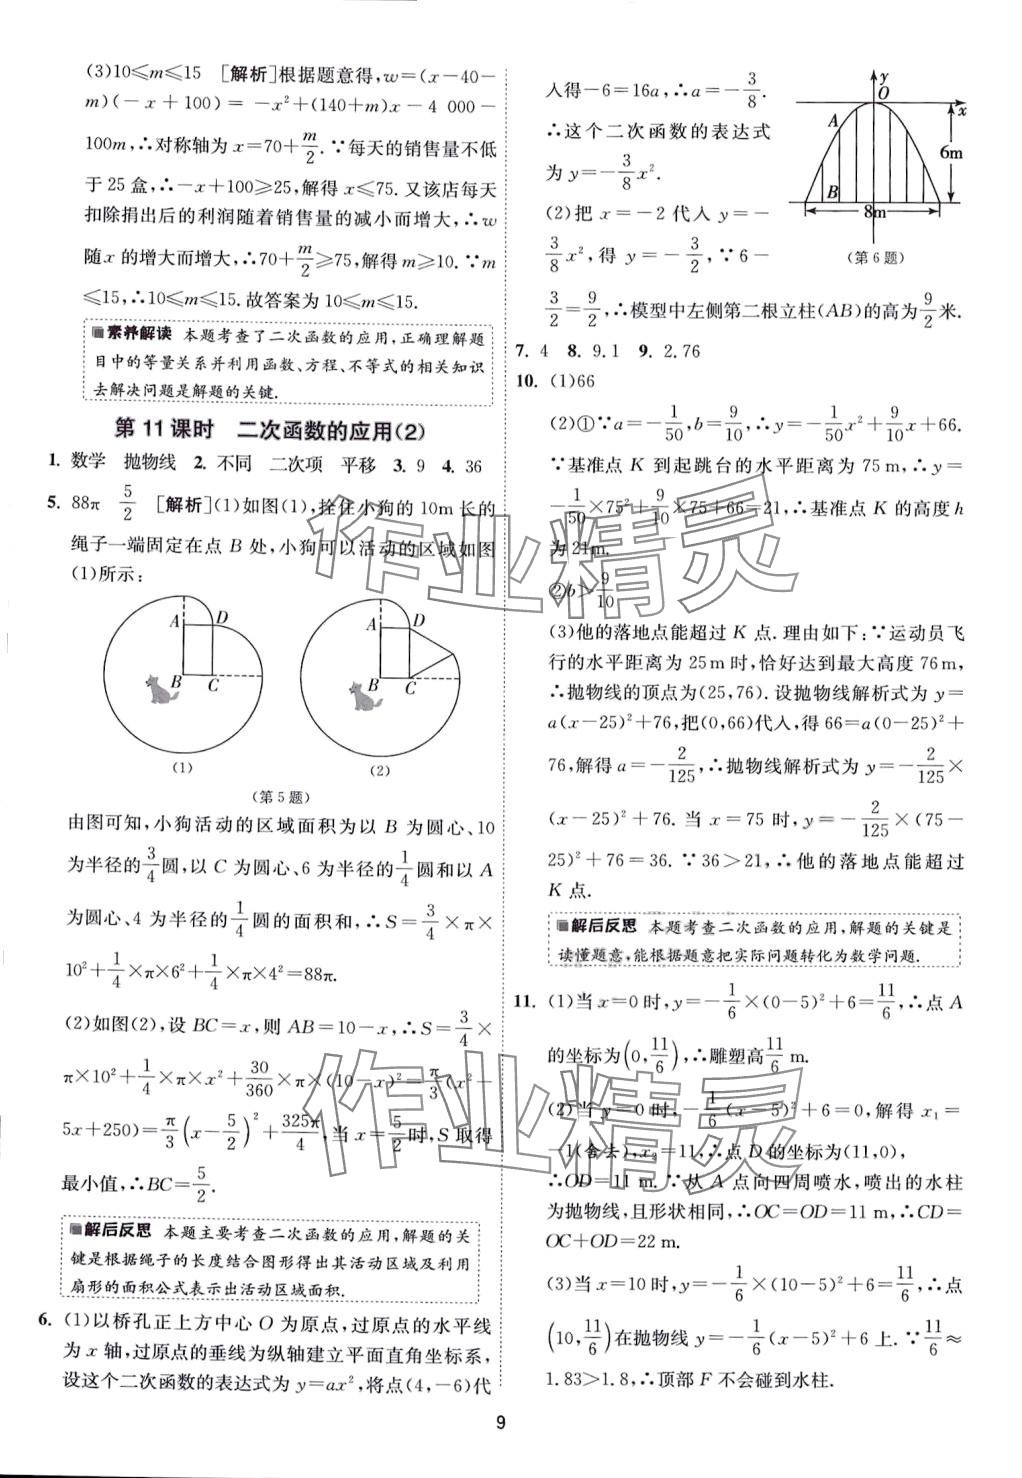 (3)10≤m≤15 [解析]根据题意得,w=(x-40-
m)(-x+100)=-x²+(140+m)x-4 000-
100m,∴对称轴为x=70+m/2.∵每天的销售量不低
于25盒,∴-x+100≥25,解得x≤75.又该店每天
扣除捐出后的利润随着销售量的减小而增大,∴w
随x的增大而增大,∴70+m/2≥75,解得m≥10.∵m
≤15,∴10≤m≤15.故答案为10≤m≤15.
素养解读 本题考查了二次函数的应用,正确理解题
目中的等量关系并利用函数、方程、不等式的相关知识
去解决问题是解题的关键.
第11课时 二次函数的应用(2)
1. 数学 抛物线 2. 不同 二次项 平移 3. 9 4. 36
5. 88π 5/2 [解析](1)如图(1),拴住小狗的10m长的
绳子一端固定在点B处,小狗可以活动的区域如图
(1)所示:
A D B C
(1)
A D B C
(2)
(第5题)
由图可知,小狗活动的区域面积为以B为圆心、10
为半径的3/4圆,以C为圆心、6为半径的1/4圆和以A
为圆心、4为半径的1/4圆的面积和,∴S=3/4×π×
10²+1/4×π×6²+1/4×π×4²=88π.
(2)如图(2),设BC=x,则AB=10-x,∴S=3/4×
π×10²+1/4×π×x²+30/360×π×(10-x)²=π/3(x²-
5x+250)=π/3(x-5/2)²+325π/4,当x=5/2时,S取得
最小值,∴BC=5/2.
解后反思 本题主要考查二次函数的应用,解题的关
键是根据绳子的长度结合图形得出其活动区域及利用
扇形的面积公式表示出活动区域面积.
6. (1)以桥孔正上方中心O为原点,过原点的水平线
为x轴,过原点的垂线为纵轴建立平面直角坐标系,
设这个二次函数的表达式为y=ax²,将点(4,-6)代
入得-6=16a,∴a=-3/8.
∴这个二次函数的表达式
为y=-3/8x².
(2)把x=-2代入y=-
3/8x²,得y=-3/2,∵6-
y O x A 6m B 8m
(第6题)
3/2=9/2,∴模型中左侧第二根立柱(AB)的高为9/2米.
7. 4 8. 9.1 9. 2.76
10. (1)66
(2)①∵a=-1/50,b=9/10,∴y=-1/50x²+9/10x+66.
∵基准点K到起跳台的水平距离为75m,∴y=
-1/50×75²+9/10×75+66=21,∴基准点K的高度h
为21m.
②b>9/10
(3)他的落地点能超过K点.理由如下:∵运动员飞
行的水平距离为25m时,恰好达到最大高度76m,
∴抛物线的顶点为(25,76).设抛物线解析式为y=
a(x-25)²+76,把(0,66)代入,得66=a(0-25)²+
76,解得a=-2/125,∴抛物线解析式为y=-2/125×
(x-25)²+76.当x=75时,y=-2/125×(75-
25)²+76=36.∵36>21,∴他的落地点能超过
K点.
解后反思 本题考查二次函数的应用,解题的关键是
读懂题意,能根据题意把实际问题转化为数学问题.
11. (1)当x=0时,y=-1/6×(0-5)²+6=11/6,∴点A
的坐标为(0,11/6),∴雕塑高11/6m.
(2)当y=0时,-1/6(x-5)²+6=0,解得x₁=
-1(舍去),x₂=11,∴点D的坐标为(11,0),
∴OD=11 m.∵从A点向四周喷水,喷出的水柱
为抛物线,且形状相同,∴OC=OD=11 m,∴CD=
OC+OD=22 m.
(3)当x=10时,y=-1/6×(10-5)²+6=11/6,∴点
(10,11/6)在抛物线y=-1/6(x-5)²+6上.∵11/6≈
1.83>1.8,∴顶部F不会碰到水柱.
作业精灵
作业精灵
9